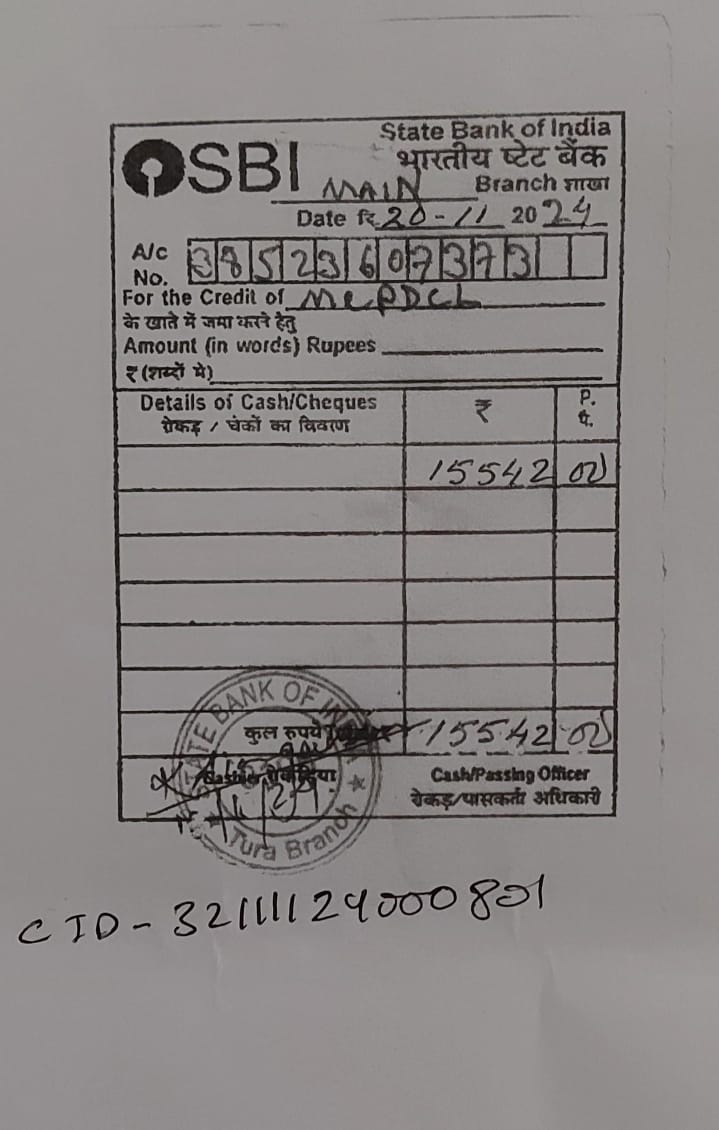 SBI
State Bank of India
भारतीय स्टेट बैंक
MAIN Branch शाखा
Date दि. 20-11 2024
A/c No. 38523607373
For the Credit of MePDCL
के खाते में जमा करने हेतु
Amount (in words) Rupees
₹ (शब्दों में)
Details of Cash/Cheques ₹ P.
रोकड़ / चेकों का विवरण पै.
15542 00
कुल रुपये 15542 00
Cash/Passing Officer
रोकड़/पासकर्ता अधिकारी
STATE BANK OF INDIA
Tura Branch
CID - 32111124000801